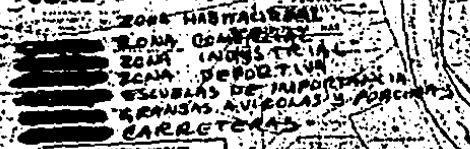 ZONA HABITACIONAL
ZONA COMERCIAL
ZONA INDUSTRIAL
ZONA DEPORTIVA
ESCUELAS DE IMPORTANCIA
GRANJAS AVICOLAS Y PORCINAS
CARRETERAS